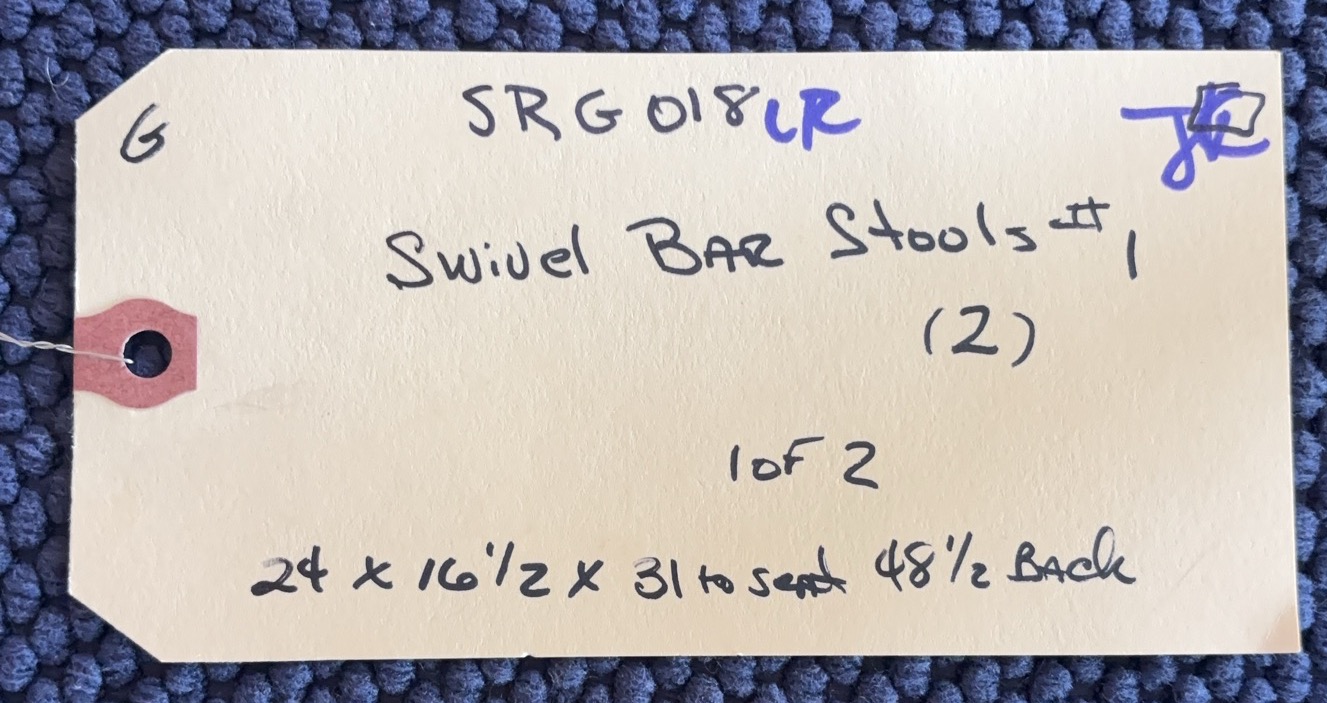 G
SRG018LR
Swivel BAR Stools #1
(2)
1 OF 2
24 x 16 1/2 x 31 to seat 48 1/2 BACk